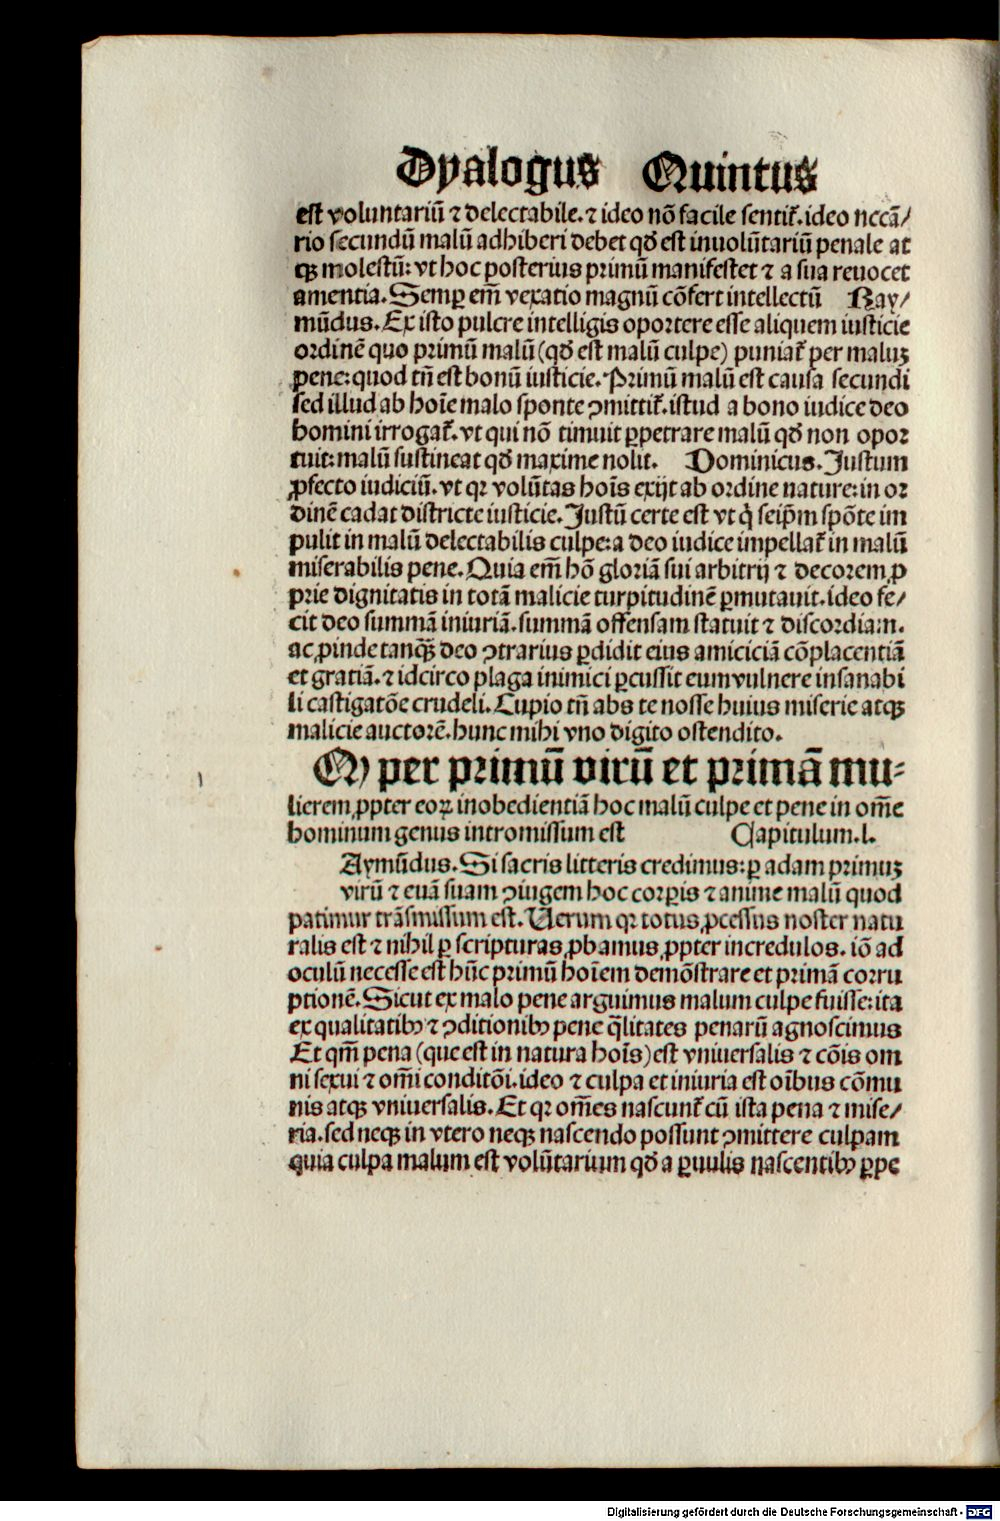 Dyalogus Quintus
est voluntariū ⁊ delectabile. ⁊ ideo nō facile sentit̄. ideo nccā/
rio secundū malū adhiberi debet qđ est inuolūtariū penale at
qꝫ molestū: vt hoc posterius primū manifestet ⁊ a sua reuocet
amentia. Semꝑ em̄ vexatio magnū cōfert intellectū Ray/
mūdus. Ex isto pulcre intelligis oportere esse aliquem iusticie
ordinē quo primū malū (qđ est malū culpe) puniat̄ per maluꝫ
pene: quod tn̄ est bonū iusticie. Primū malū est causa secundi
sed illud ab hoīe malo sponte ꝯmittit̄. istud a bono iudice deo
homini irrogat̄. vt qui nō timuit ꝑpetrare malū qđ non opoꝛ
tuit: malū sustineat qđ maxime nolit. Dominicus. Justum
ꝓfecto iudiciū. vt qꝛ volūtas hoīs exijt ab oꝛdine nature: in oꝛ
dinē cadat districte iusticie. Justū certe est vt q̇ seip̄m spōte im
pulit in malū delectabilis culpe: a deo iudice impellat̄ in malū
miserabilis pene. Quia em̄ hō gloriā sui arbitrij ⁊ decoꝛem ꝓ
prie dignitatis in totā malicie turpitudinē ꝑmutauit. ideo fe/
cit deo summā iniuriā. summā offensam statuit ⁊ discoꝛdiam.
ac ꝓinde tanqꝫ̄ deo ꝯtrarius ꝑdidit eius amiciciā cōplacentiā
et gratiā. ⁊ idcirco plaga inimici ꝑcussit eum vulnere insanabi
li castigatōe crudeli. Cupio tn̄ abs te nosse huius miserie atqꝫ
malicie auctoꝛē. hunc mihi vno digito ostendito.
Qꝫ per pꝛimū virū et pꝛimā mu-
lierem ꝓpter eoꝝ inobedientiā hoc malū culpe et pene in om̄e
hominum genus intromissum est Capitulum. l.
Aymūdus. Si sacris litteris credimus: ꝑ adam primuꝫ
virū ⁊ euā suam ꝯiugem hoc coꝛꝑis ⁊ anime malū quod
patimur trāsmissum est. Uerum qꝛ totus ꝓcessus noster natu
ralis est ⁊ nihil ꝑ scripturas ꝓbamus ꝓpter incredulos. iō ad
oculū necesse est hūc primū hoīem demōstrare et primā coꝛru
ptionē. Sicut ex malo pene arguimus malum culpe fuisse: ita
ex qualitatibꝰ ⁊ ꝯditionibꝰ pene q̄litates penarū agnoscimus
Et qm̄ pena (que est in natura hoīs) est vniuersalis ⁊ cōis om
ni sexui ⁊ om̄i conditōi. ideo ⁊ culpa et iniuria est oībus cōmu
nis atqꝫ vniuersalis. Et qꝛ om̄es nascunt̄ cū ista pena ⁊ mise/
ria. sed neqꝫ in vtero neqꝫ nascendo possunt ꝯmittere culpam
quia culpa malum est volūtarium qđ a ꝑuulis nascentibꝰ ꝑpe
Digitalisierung gefördert durch die Deutsche Forschungsgemeinschaft - DFG